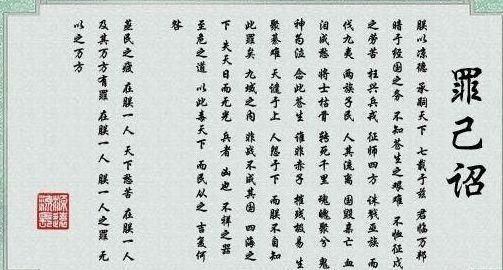 罪己诏
朕以凉德 承嗣天下 七载于兹 君临万邦
暗于经国之务 不知苍生之艰难 不恤征戍
之劳苦 枉兴兵戎 征师四方 诛戮亚族 而
伐九夷 两族子民 人其流离 国毁巢亡 血
泪成愁 将士枯骨 转死千里 魂魄聚兮 鬼
神苟泣 念此苍生 谁非赤子 摧残极易 生
聚綦难 天谴于上 人怨于下 而朕不自知
此罪矣 九域之内 非战不成其国 四海之
下 失天日而无光 兵者 凶也 不祥之器
至危之道 以此毒天下 而民从之 吉又何
咎
至民之疲 在朕一人 天下愁苦 在朕一人
及其万方有罪 在朕一人 朕一人之罪 无
以之万方